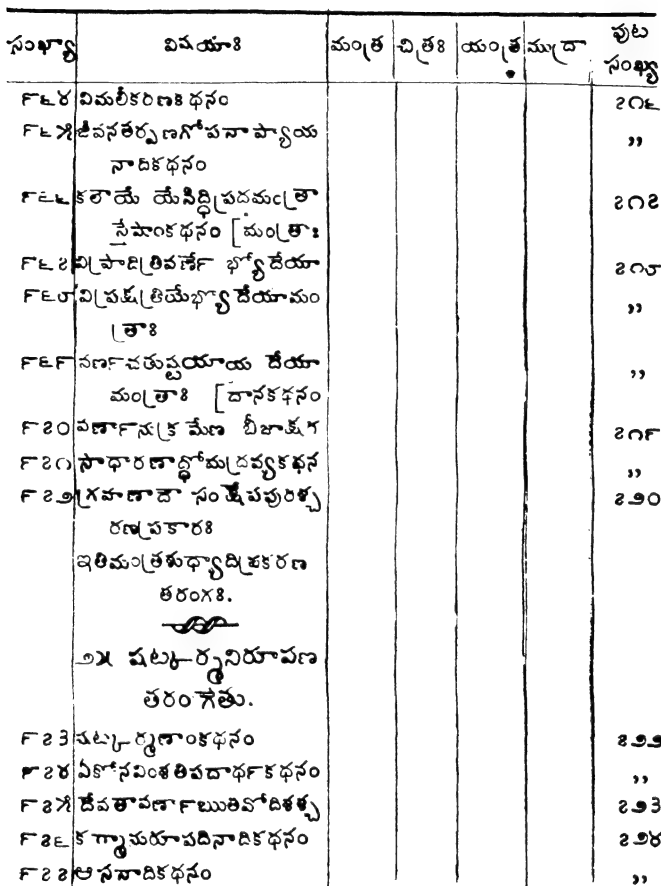 సంఖ్యా విషయాః మంత్ర చిత్రః యంత్ర ముద్రా పుట సంఖ్య
౯౬౪ విమలీకరణకథనం ౭౧౬
౯౬౫ జీవనతర్పణగోపనాప్యాయ ,,
నాదికథనం
౯౬౬ కలౌయే యేసిద్ధిప్రదమంత్రా ౭౧౭
స్తేషాంకథనం [మంత్రాః
౯౬౭ విప్రాదిత్రివర్ణేభ్యోదేయా ౭౧౮
౯౬౮ విప్రక్షత్రియేభ్యోదేయామం ,,
త్రాః
౯౬౯ వర్ణచతుష్టయాయ దేయా ,,
మంత్రాః [దానకథనం
౯౭౦ వర్ణానుక్రమేణ బీజాక్షర ౭౧౯
౯౭౧ సాధారణాద్ధోమద్రవ్యకథన ,,
౯౭౨ గ్రహణాదౌ సంక్షేపపురశ్చ ౭౨౦
రణప్రకారః
ఇతిమంత్రశుధ్యాదిప్రకరణ
తరంగః.
౨౫ షట్కర్మనిరూపణ
తరంగేతు.
౯౭౩ షట్కర్మణాంకథనం ౭౨౨
౯౭౪ ఏకోనవింశతిపదార్థకథనం ,,
౯౭౫ దేవతావర్ణాఋతవోదిశశ్చ ౭౨౩
౯౭౬ కర్మానురూపదినాదికథనం ౭౨౪
౯౭౭ ఆసనాదికథనం ,,